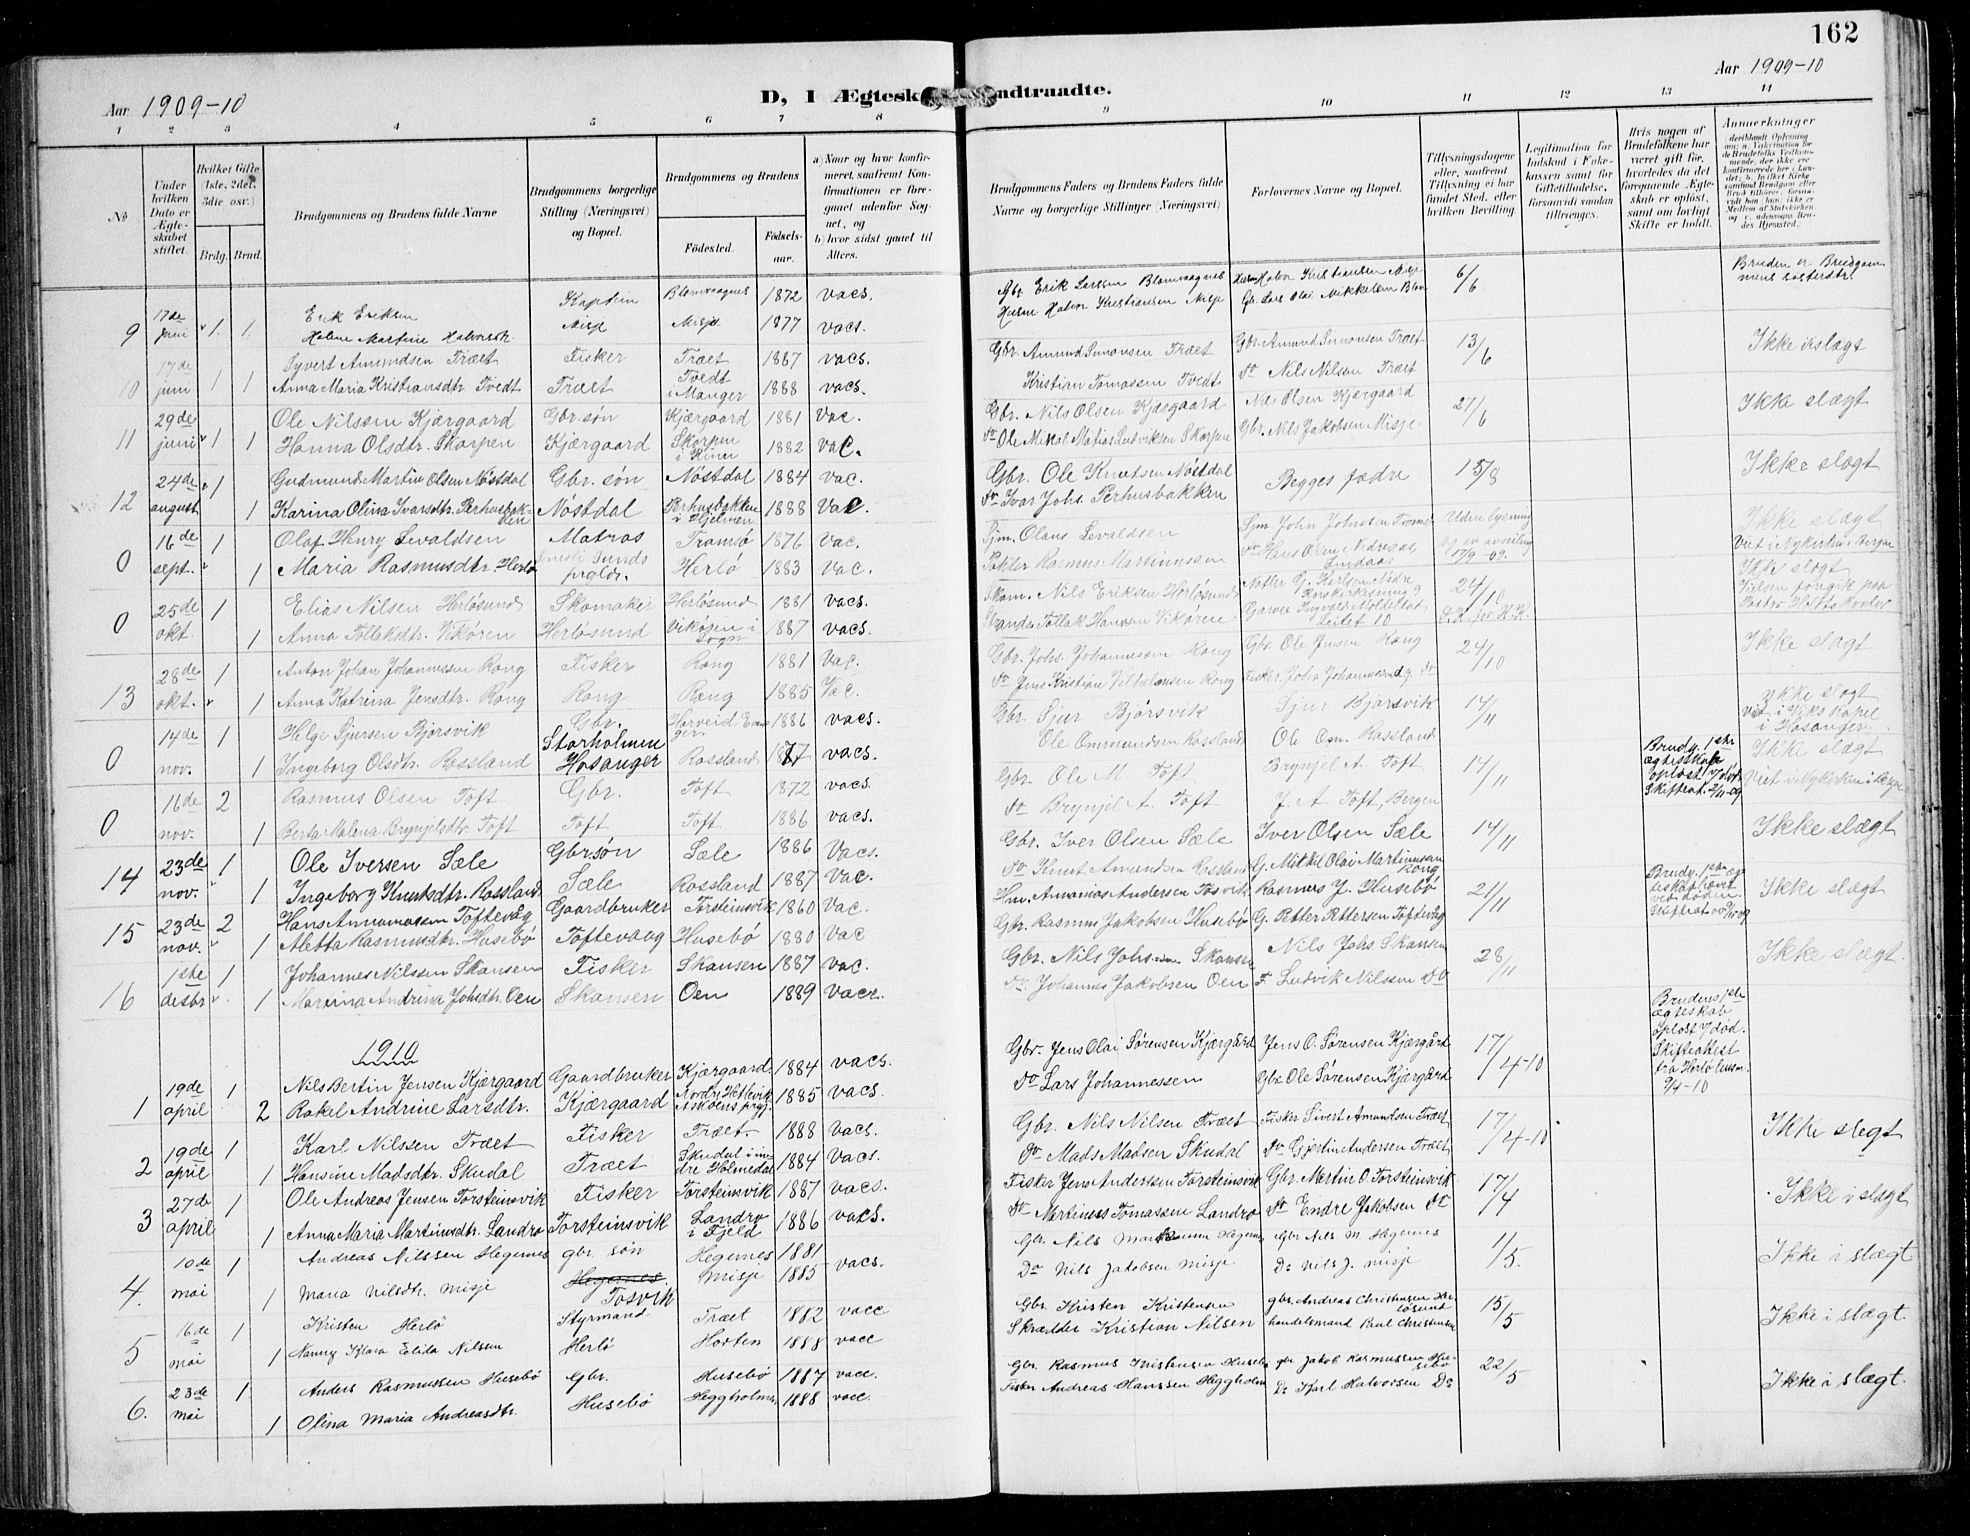 162
Aar 1909-10
Aar 1909-10
D, I Ægtesk ndtraadte.
1 2 3 4 5 6 7 8
9 10 11 12 13 14
No
Under hvilken Dato er Ægteskabet stiftet.
Hvilket Gifte (1ste, 2det, 3die osv.)
Brdg. Brud.
Brudgommens og Brudens fulde Navne
Brudgommens borgerlige Stilling (Næringsvei) og Bopæl.
Brudgommens og Brudens
Fødested. Fødselsaar.
a) Naar og hvor konfirmeret, saafremt Konfirmationen er foregaaet udenfor Sognet, og
b) hvor sidst gaaet til Alters.
Brudgommens Faders og Brudens Faders fulde Navne og borgerlige Stillinger (Næringsvei)
Forlovernes Navne og Bopæl.
Tillysningsdagene eller, saafremt Tillysning ei har fundet Sted, efter hvilken Bevilling.
Legitimation for Indskud i Enkekassen samt for Giftetilladelse, forsaavidt saadan tiltrænges.
Hvis nogen af Brudefolkene har været gift før, hvorledes da det foregaaende Ægteskab er opløst, samt om lovligt Skifte er holdt.
Anmærkninger
9 17de juni 1. 1. Erik Eriksen Kaptein Blomvaagnes 1872 vacs. Gbr Erik Larssen Blomvaagnes Husm Halvor Kristiansen Misje 6/6 Bruden er Brudgommens søsterdtr.
Halene Martine Halvorsdtr. Misje Misje 1877 vacs. Husm Halvor Kristiansen Misje Gr. Lars Olai Mikkelsen Blom
10 17de juni 1 1 Syvert Amundsen Træet Fisker Træet 1867 vacs. Gbr. Amund Simonsen Træet Gbr. Amund Simonsen Træet 13/6 Ikke i slægt
Anna Maria Kristiansdtr Tvedt Træet Tvedt i Manger 1868 vacs. Kristian Tomassen Tvedt do Nils Nilsen Træet
11 29de juni 1 1 Ole Nilssen Kjærgaard Gbr. søn Kjærgaard 1881 vac. Gbr. Nils Olsen Kjærgaard Nils Olsen Kjærgaard 27/6 Ikke slægt
Hanna Olsdtr. Skorpen Kjærgaard Skorpen i Kinn 1882 vac. do Ole Mikal Matias Ludviksen Skorpen Gbr. Nils Jakobsen Misje
12 24de august 1 1 Gudmund Martin Olsen Nøstdal Gbr. søn Nøstdal 1884 vac. Gbr. Ole Knutsen Nøstdal Begges fædre 15/8 Ikke slægt
Karina Olina Ivarsdtr. Perhusbakken Nøstdal Perhusbakken i Hjelmen 1888 vac. do Ivar Johs. Perhusbakken
0 16de sept. 1 1 Olaf Henry Sevaldsen Matros Tromsø 1876 vac. Sjm. Olaus Sevaldsen Sjm. John Johnsen Tromsø Uden lysning Ikke slægt
Maria Rasmusdtr. Herlø Herlø 1883 vac. Rasmus Martinussen do Hans Olsen 17/9-09. Viet i Nykirken i Bergen
0 25de okt. 1 1 Elias Nilsen Herløsund Skomaker Herløsund 1881 vacs. Skom. Nils Eriksen Herløsund 24/10 Ikke slægt
Anna Tollaksdtr. Vikøren Herløsund Vikøren i Sogn 1887 vacs. Tollak Hanssen Vikøren
13 28de okt. 1 1 Anton Johan Johannessen Rong Fisker Rong 1881 Vac. Gbr. Johs. Johannessen Rong Gbr Ole Jensen Rong 24/10 Ikke slægt
Anna Katrina Jensdtr. Rong Rong Rong 1885 Vac. do Jens Kristian Vilhelmsen Rong Fisker John Johannessen do
0 14de nov. 1 1 Helge Sjursen Bjørsvik Gbr. 1886 vacs. Gbr. Sjur Bjørsvik Sjur Bjørsvik 14/11 Ikke slægt viet i Viks kapel i Hosanger
Ingeborg Olsdtr. Rossland Storholmen Hosanger Rossland 1877 vacs. Ole Ommundsen Rossland Ole Om. Rossland
0 16de nov. 2 1 Rasmus Olsen Toft Gbr. Toft 1872 vacs. Gbr. Ole M. Toft Brynjel A. Toft 14/11 Brudg. 1ste ægteskab opløst v død. Skifteat. 2/11-09 Ikke slægt
Berta Malena Brynjelsdtr. Toft Toft Toft 1886 vacs. do Brynjel A. Toft J. A. Toft, Bergen Viet i Nykirken i Bergen
14 23de nov. 1 1 Ole Iversen Sæle Gbrsøn Sæle 1886 Vacs. Gbr. Iver Olsen Sæle Iver Olsen Sæle 14/11 Ikke slægt
Ingeborg Knutsdtr. Rossland Sæle Rossland 1887 Vac. do Knut Amundsen Rossland G. Mikkel Olai Martinussen Rong
15 23de nov. 2 1 Hans Annanisen Toftevåg Gaardbruker Torsteinsvik 1860 Vac. Hm. Ananias Andersen Tosvik Rasmus J. Husebø 21/11 Ikke slægt
Aletta Rasmusdtr. Husebø Toftevaag Husebø 1880 vac Gbr. Rasmus Jakobsen Husebø G. Retter Rettersen Toftevåg
16 1ste desbr 1 1 Johannes Nilssen Skansen Fisker Skansen 1887 vac. Gbr. Nils Johs.sen Skansen Nils Johs Skansen 28/11 Ikke slægt.
Martina Andrina Johsdtr. Oen Skansen Oen 1889 vacc. do. Johannes Jakobsen Oen F. Ludvik Nilssen do
1910
1 19de april 1 2 Nils Bertin Jensen Kjærgaard Gaardbruker Kjærgaard 1884 vacs. Gbr. Jens Olai Sørensen Kjærgård Jens O. Sørensen Kjærgård 17/4-10 Brudens 1ste ægteskab opløst v død. Skifteattest fra Herlø lensm. 9/4-10
Rakel Andrine Larsdtr. Kjærgaard Nordre Hetlevik Askøens prgj. 1885 vacs. do Lars Johannessen Gbr. Ole Sørensen Kjærgård
2 19de april 1 1 Karl Nilssen Træet Fisker Træet. 1888 vacs. Gbr. Nils Nilsen Træet Fisker Sivert Amundsen Træet 17/4-10 Ikke slægt
Hansine Madsdtr. Skudal Træet Skudal i indre Holmedal 1884 vacs. do Mads Madsen Skudal do Gjertin Andersen Træet
3 27de april 1 1 Ole Andreas Jensen Torsteinsvik Fisker Torsteinsvik 1887 vacs. Fisker Jens Anderssen Torsteinsvik Gbr. Martin O. Torsteinsvik 17/4 Ikke i slægt
Anna Maria Martinusdtr. Landro Torsteinsvik Landro i Fjeld 1886 vacs. do Martinus Tomassen Landro do Endre Jakobsen do
4. 10de mai 1 1 Andreas Nilssen Hegernes gbr. søn Hegernes 1881 vacs. Gbr Nils Hegernes Gbr Nils M. Hegernes 1/5. Ikke i slægt
Maria Nilsdtr. Misje Hegernes Tosvik Misje 1885 Do Nils Jakobsen Misje Do Nils J. Misje
5 16de mai 1 1 Kristen Herlø Styrmand Træet 1882 vacc Gbr. Kristen Kristensen gbr. Andreas Christensen Herløsund 15/5 Ikke i slægt.
Nanny Klara Elida Nilsen Herlø Horten 1888 vacc Skrædder Kristian Nilsen handelsmand Paul Christensen
6. 23de mai 1 1 Anders Rasmussen Husebø Gbr. Husebø 1887 vacc. Gbr Rasmus Kristensen Husebø gbr Jakob Rasmussen Husebø 22/5 Ikke i slægt.
Olina Maria Andreasdtr. Husebø Heggholmen 1888 vacc Fisker Andreas Hanssen Heggholmen Do Karl Halvorsen Do